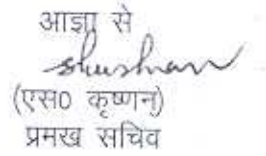 आज्ञा से
(एस0 कृष्णन)
प्रमख सचिव